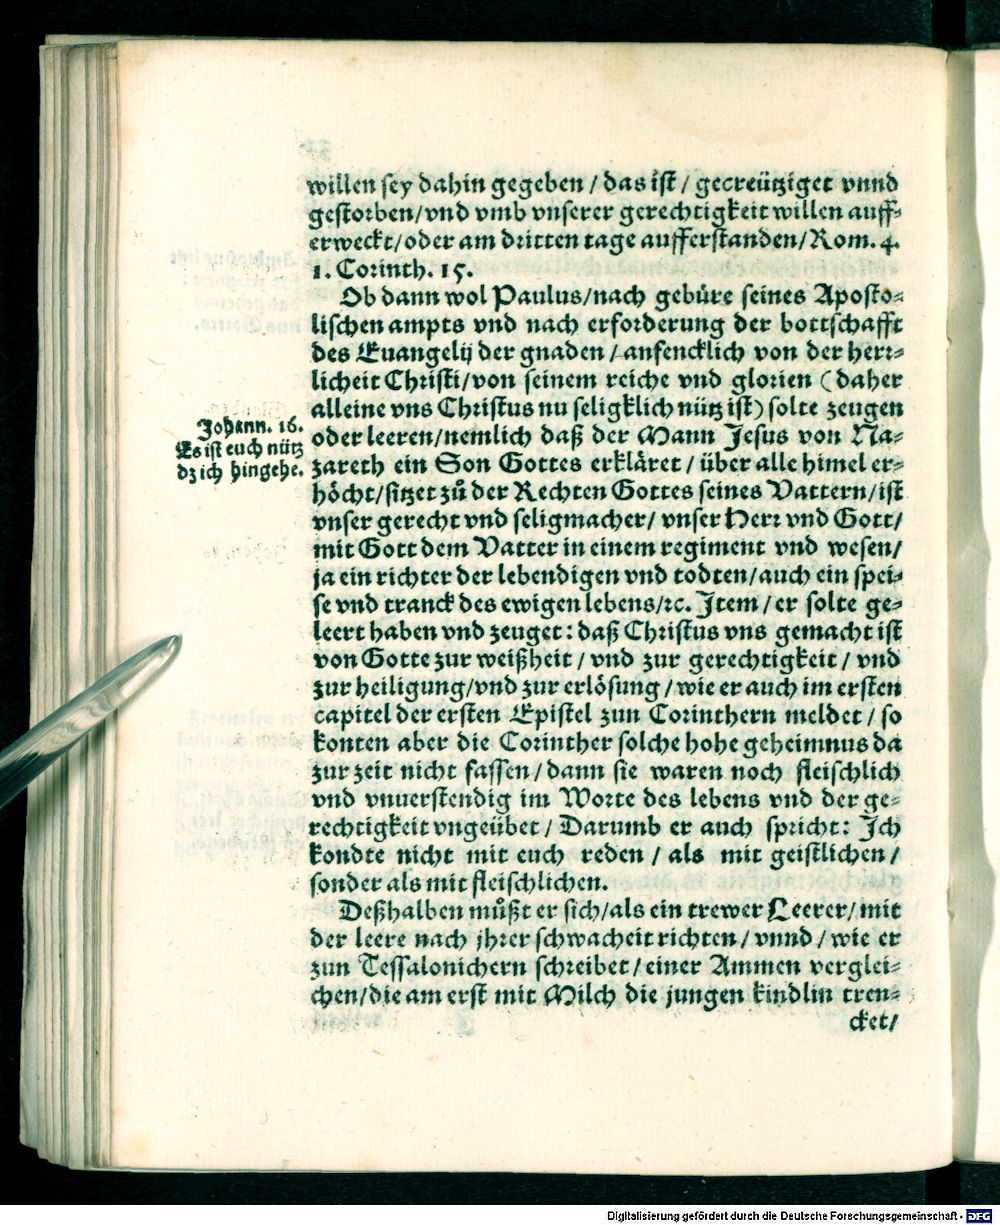 willen sey dahin gegeben / das ist / gecreütziget vnnd
gestorben/vnd vmb vnserer gerechtigkeit willen auff-
erweckt/oder am dritten tage aufferstanden/Rom. 4.
1. Corinth. 15.
Ob dann wol Paulus/nach gebüre seines Aposto-
lischen ampts vnd nach erforderung der bottschafft
des Euangelij der gnaden / anfencklich von der herr-
licheit Christi/von seinem reiche vnd glorien (daher
alleine vns Christus nu seligklich nütz ist) solte zeugen
oder leeren/nemlich daß der Mann Jesus von Na-
zareth ein Son Gottes erkläret / über alle himel er-
höcht/sitzet zů der Rechten Gottes seines Vattern/ist
vnser gerecht vnd seligmacher/ vnser Herr vnd Gott/
mit Gott dem Vatter in einem regiment vnd wesen/
ja ein richter der lebendigen vnd todten/auch ein spei-
se vnd tranck des ewigen lebens/ꝛc. Item / er solte ge-
leert haben vnd zeuget: daß Christus vns gemacht ist
von Gotte zur weißheit / vnd zur gerechtigkeit / vnd
zur heiligung/vnd zur erlösung / wie er auch im ersten
capitel der ersten Epistel zun Corinthern meldet / so
konten aber die Corinther solche hohe geheimnus da
zur zeit nicht fassen / dann sie waren noch fleischlich
vnd vnuerstendig im Worte des lebens vnd der ge-
rechtigkeit vngeübet / Darumb er auch spricht: Ich
kondte nicht mit euch reden / als mit geistlichen /
sonder als mit fleischlichen.
Deßhalben můßt er sich/als ein trewer Leerer/mit
der leere nach jhrer schwacheit richten/ vnnd / wie er
zun Tessalonichern schreibet / einer Ammen verglei-
chen/die am erst mit Milch die jungen kindlin tren-
cket/
Johann. 16.
Es ist euch nütz
dz ich hingehe.
Digitalisierung gefördert durch die Deutsche Forschungsgemeinschaft - DFG